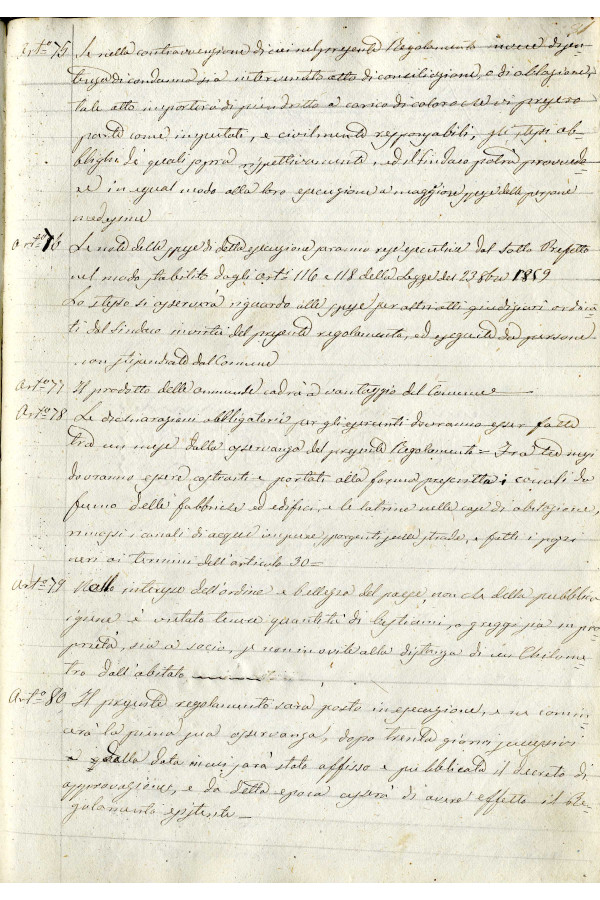 Art.º 75 Se nella contravvenzione di cui nel presente Regolamento invece di sen-
tenza di condanna sia intervenuto atto di conciliazione, o di oblazione,
tale atto importerà di pien dritto a carico di coloro che vi presero
parte come imputati, e civilmente responsabili, gli stessi ob-
blighi de' quali sopra rispettivamente, ed il Sindaco potrà provvede-
re in egual modo alla loro esecuzione a maggiori spese delle persone
medesime
Art.º 76 Le note delle spese di detta esecuzione saranno rese esecutive dal Sotto Prefetto
nel modo stabilito dagli Art.i 116 e 118 della Legge del 23 8bre 1859
Lo stesso si osserverà riguardo alle spese per altri atti giudiziari ordina-
ti dal Sindaco in virtù del presente regolamento, ed eseguite da persone
non stipendiate dal Comune
Art.º 77 Il prodotto delle ammende cadrà a vantaggio del Comune
Art.º 78 Le dichiarazioni obbligatorie per gli esercenti dovranno esser fatte
tra un mese dalla osservanza del presente Regolamento = Fra tre mesi
dovranno essere costrutti e portati alla forma prescritta i canali da
fumo delle fabbriche ed edifici, e le latrine nelle case di abitazione,
rimossi i canali di acque impure sporgenti sulle strade, e fatti i pozzi
neri ai termini dell'articolo 30 =
Art.º 79 Nello interesse dell'ordine e bellezza del paese, non che della pubblica
igiene è vietato tenere quantità di bestiami, o greggi sia in pro-
prietà, sia a socio, se non in ovile alla distanza di un Chilome-
tro dall'abitato
Art.º 80 Il presente regolamento sarà posto in esecuzione, e ne comin-
cerà la piena sua osservanza, dopo trenta giorni successivi
dalla data in cui sarà stato affisso e pubblicato il decreto di
approvazione, e da detta epoca cesserà di avere effetto il Re-
golamento esistente